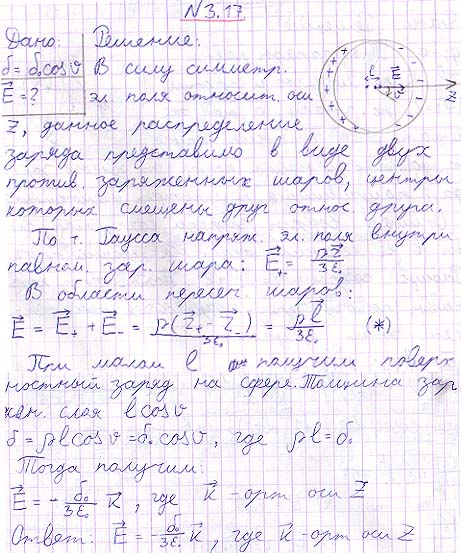 N 3.17
Дано: Решение:
б = б₀cosϑ В силу симметр.
E⃗ = ? эл. поля относит. оси
Z, данное распределение
заряда представимо в виде двух
против. заряженных шаров, центры
которых смещены друг относ. друга.
По т. Гаусса напряж. эл. поля внутри
равном. зар. шара: E⃗₊ = ρr⃗/3ε₀
В области пересеч. шаров:
E⃗ = E⃗₊ + E⃗₋ = ρ(r⃗₊ - r⃗₋)/3ε₀ = ρl⃗/3ε₀ (*)
При малом l получим поверх
ностный заряд на сфере. Толщина заря
жен. слоя l cosϑ
б = ρl cosϑ = б₀ cosϑ, где ρl = б₀
Тогда получим:
E⃗ = - б₀/3ε₀ k⃗, где k⃗ - орт оси Z
Ответ: E⃗ = - б₀/3ε₀ k⃗, где k⃗ - орт оси Z
+ + + + + l E⃗ ϑ - - - - - Z